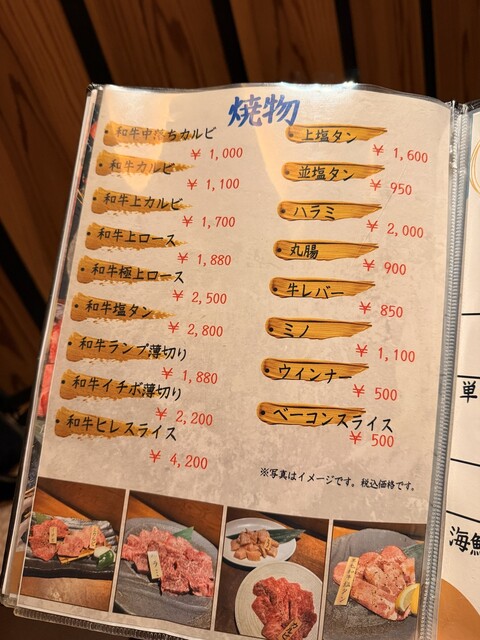 焼物
和牛中落ちカルビ
¥ 1,000
和牛カルビ
¥ 1,100
和牛上カルビ
¥ 1,700
和牛上ロース
¥ 1,880
和牛極上ロース
¥ 2,500
和牛塩タン
¥ 2,800
和牛ランプ薄切り
¥ 1,880
和牛イチボ薄切り
¥ 2,200
和牛ヒレスライス
¥ 4,200
上塩タン
¥ 1,600
並塩タン
¥ 950
ハラミ
¥ 2,000
丸腸
¥ 900
牛レバー
¥ 850
ミノ
¥ 1,100
ウインナー
¥ 500
ベーコンスライス
¥ 500
※写真はイメージです。税込価格です。
単
海鮮